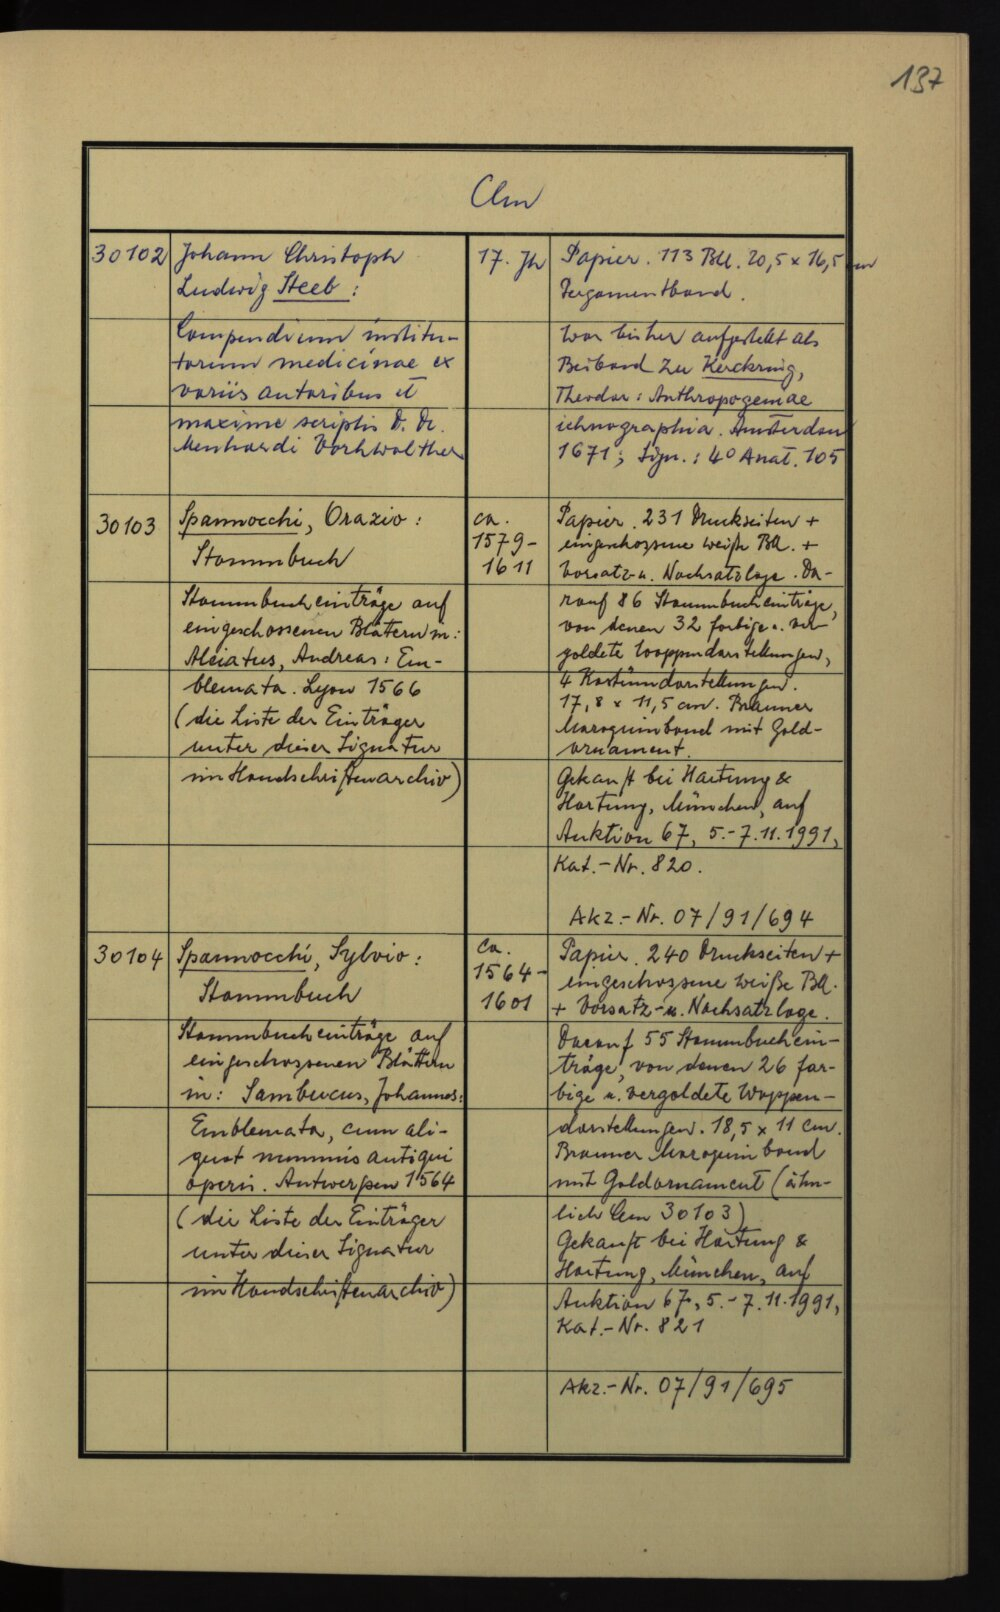 137
Clm
30102
Johann Christoph
Ludwig Steeb :
Compendium institu-
torum medicinae ex
variis autoribus et
maxime scriptis D. Dr.
Menhardi Vorhwalther
17. Jh
Papier. 113 Bll. 20,5 x 16,5 cm
Pergamentband.
War bisher aufgestellt als
Beiband zu Kerckring,
Theodor: Anthropogeniae
ichnographia. Amsterdam
1671; Sign.: 4° Anat. 105
30103
Spannocchi, Orazio :
Stammbuch
Stammbucheinträge auf
eingeschossenen Blättern in:
Alciatus, Andreas: Em-
blemata. Lyon 1566
(die Liste der Einträger
unter dieser Signatur
im Handschriftenarchiv)
ca.
1579-
1611
Papier. 231 Druckseiten +
eingeschossene weiße Bll. +
Vorsatz- u. Nachsatzlage. Da-
rauf 86 Stammbucheinträge,
von denen 32 farbige u. ver-
goldete Wappendarstellungen,
4 Kostümdarstellungen.
17,8 x 11,5 cm. Brauner
Maroquinband mit Gold-
ornament.
Gekauft bei Hartung &
Hartung, München, auf
Auktion 67, 5.-7.11.1991,
Kat.-Nr. 820.
Akz.-Nr. 07/91/694
30104
Spannocchi, Sylvio :
Stammbuch
Stammbucheinträge auf
eingeschossenen Blättern
in: Sambucus, Johannes:
Emblemata, cum ali-
quot nummis antiqui
operis. Antwerpen 1564
(die Liste der Einträger
unter dieser Signatur
im Handschriftenarchiv)
ca.
1564-
1601
Papier. 240 Druckseiten +
eingeschossene weiße Bll.
+ Vorsatz- u. Nachsatzlage.
Darauf 55 Stammbuchein-
träge, von denen 26 far-
bige u. vergoldete Wappen-
darstellungen. 18,5 x 11 cm.
Brauner Maroquinband
mit Goldornament (ähn-
lich Clm 30103)
Gekauft bei Hartung &
Hartung, München, auf
Auktion 67, 5.-7.11.1991,
Kat.-Nr. 821
Akz.-Nr. 07/91/695